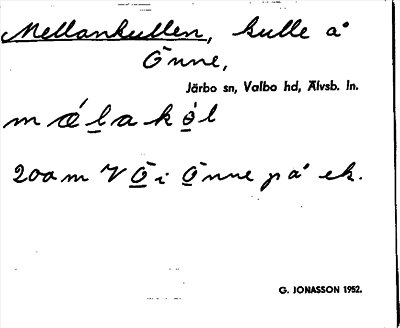 Mellankullen, kulle å
Önne,
Järbo sn, Valbo hd, Älvsb. ln.
mǽl̲akə̲́l
200 m V Ö̲ i Ö̲nne på ek.
G. JONASSON 1952.